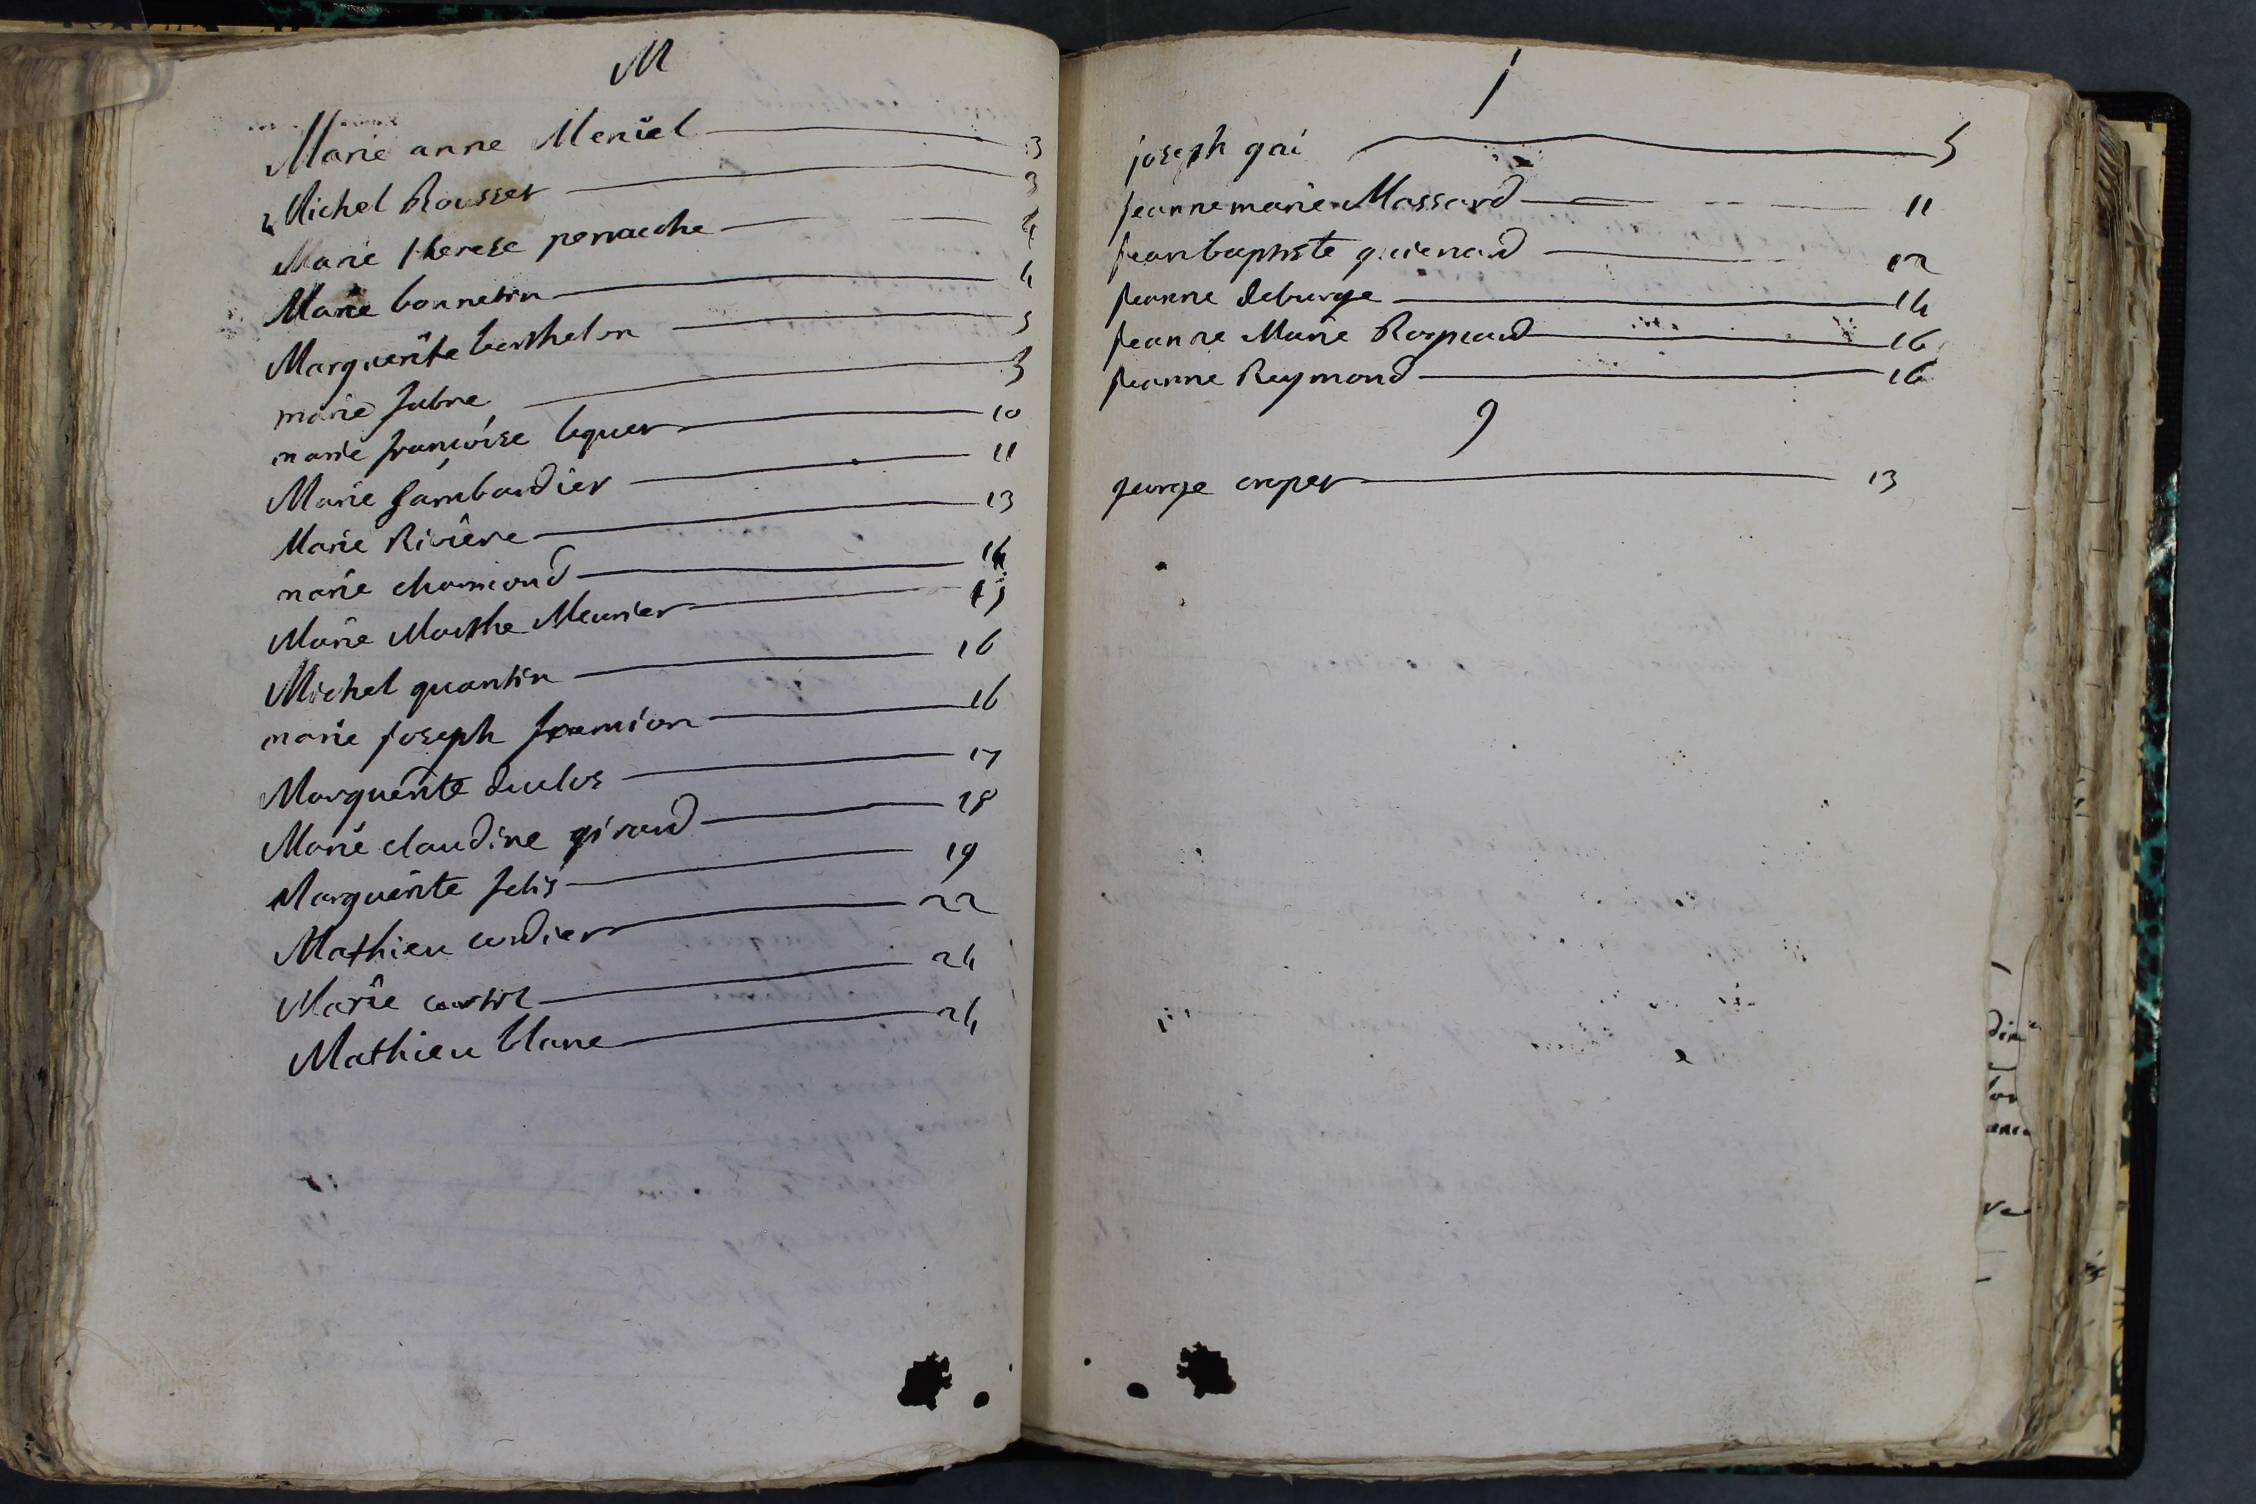 M
Marie anne Meniel 3
Michel Rousset 3
Marie therese perrache 4
Marie bonneton 4
Marguerite berthelon 5
marie fabre 5
marie francoise 10
Marie Gambardier 11
Marie Riviere 13
marie chamoand 14
Marie Marthe Meunier 15
Michel quantin 16
marie joseph fremion 16
Marguerite duclos 17
Marie claudine giraud 18
Marguerite felis 19
Mathieu cordier 22
Marie 24
Mathieu blanc 24
j
joseph gai 5
jeanne marie Massard 11
jean baptiste guienard 12
jeanne deburge 14
jeanne Marie 16
jeanne Reymond 16
g
george 13